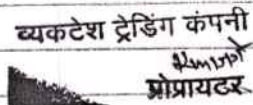 व्यकटेश ट्रेडिंग कंपनी
प्रोप्रायटर